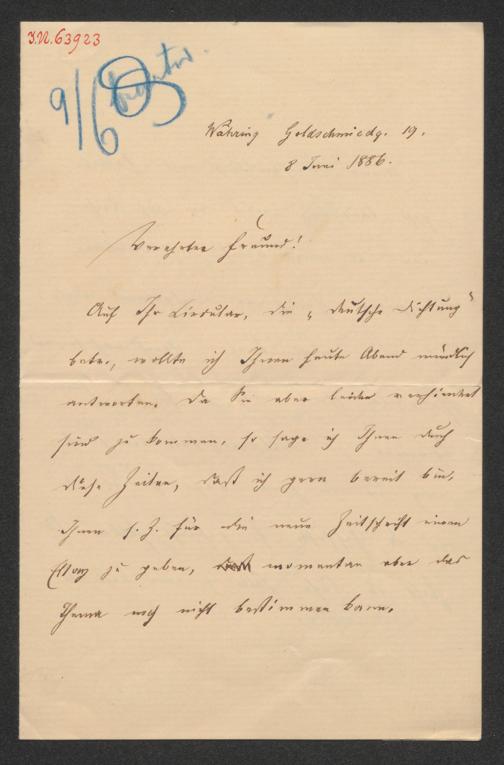 J.N. 63923
9/6
Währing Goldschmiedg. 19.
8 Juni 1886.
Verehrter Freund!
Auf Ihr Circular, die „deutsche Dichtung"
betr., wollte ich Ihnen heute Abend mündlich
antworten. Da Sie aber leider verhindert
sind zu kommen, so sage ich Ihnen durch
diese Zeilen, daß ich gern bereit bin,
Ihnen s. Z. für die neue Zeitschrift einen
Essay zu geben, momentan aber das
Thema noch nicht bestimmen kann.